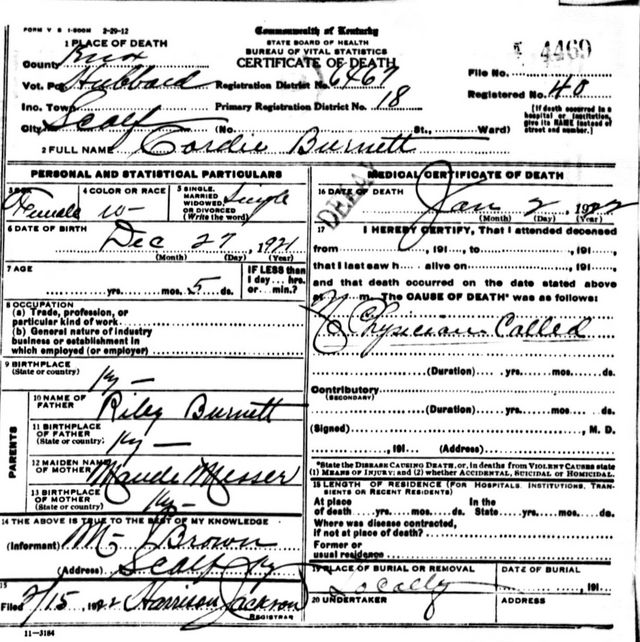 FORM V S 1-500M 2-29-12
Commonwealth of Kentucky
STATE BOARD OF HEALTH
BUREAU OF VITAL STATISTICS
CERTIFICATE OF DEATH
1 PLACE OF DEATH
County Knox
Vot. Pct. Hubbard Registration District No. 6467
Inc. Town Primary Registration District No. 18
City Scalf (No. St., Ward)
File No. 4469
Registered No. 40
[If death occurred in a hospital or institution, give its NAME instead of street and number.]
2 FULL NAME Cordie Burnett
PERSONAL AND STATISTICAL PARTICULARS
3 SEX Female
4 COLOR OR RACE W
5 SINGLE, MARRIED, WIDOWED, OR DIVORCED (Write the word) Single
6 DATE OF BIRTH
Dec 27, 1921
(Month) (Day) (Year)
7 AGE
yrs. mos. 5 ds.
IF LESS than 1 day... hrs. or... min.?
8 OCCUPATION
(a) Trade, profession, or particular kind of work
(b) General nature of industry business or establishment in which employed (or employer)
9 BIRTHPLACE
(State or country) Ky
PARENTS
10 NAME OF FATHER Riley Burnett
11 BIRTHPLACE OF FATHER (State or country) Ky
12 MAIDEN NAME OF MOTHER Maude Messer
13 BIRTHPLACE OF MOTHER (State or country) Ky
14 THE ABOVE IS TRUE TO THE BEST OF MY KNOWLEDGE
(Informant) M J Brown
(Address) Scalf Ky
15
Filed 2/15, 1922 Harrison Jackson
REGISTRAR
11-3184
MEDICAL CERTIFICATE OF DEATH
DELAY
16 DATE OF DEATH
Jan 2, 1922
(Month) (Day) (Year)
17 I HEREBY CERTIFY, That I attended deceased
from, 191, to, 191,
that I last saw h alive on, 191,
and that death occurred on the date stated above
at m. The CAUSE OF DEATH* was as follows:
No Physician Called
(Duration) yrs. mos. ds.
Contributory
(SECONDARY)
(Duration) yrs. mos. ds.
(Signed), M. D.
, 191 (Address)
*State the DISEASE CAUSING DEATH, or, in deaths from VIOLENT CAUSES state (1) MEANS OF INJURY; and (2) whether ACCIDENTAL, SUICIDAL or HOMICIDAL.
18 LENGTH OF RESIDENCE (FOR HOSPITALS, INSTITUTIONS, TRANSIENTS OR RECENT RESIDENTS)
At place of death yrs. mos. ds. In the State yrs. mos. ds.
Where was disease contracted, if not at place of death?
Former or usual residence
19 PLACE OF BURIAL OR REMOVAL Locally
DATE OF BURIAL
, 191
20 UNDERTAKER
ADDRESS